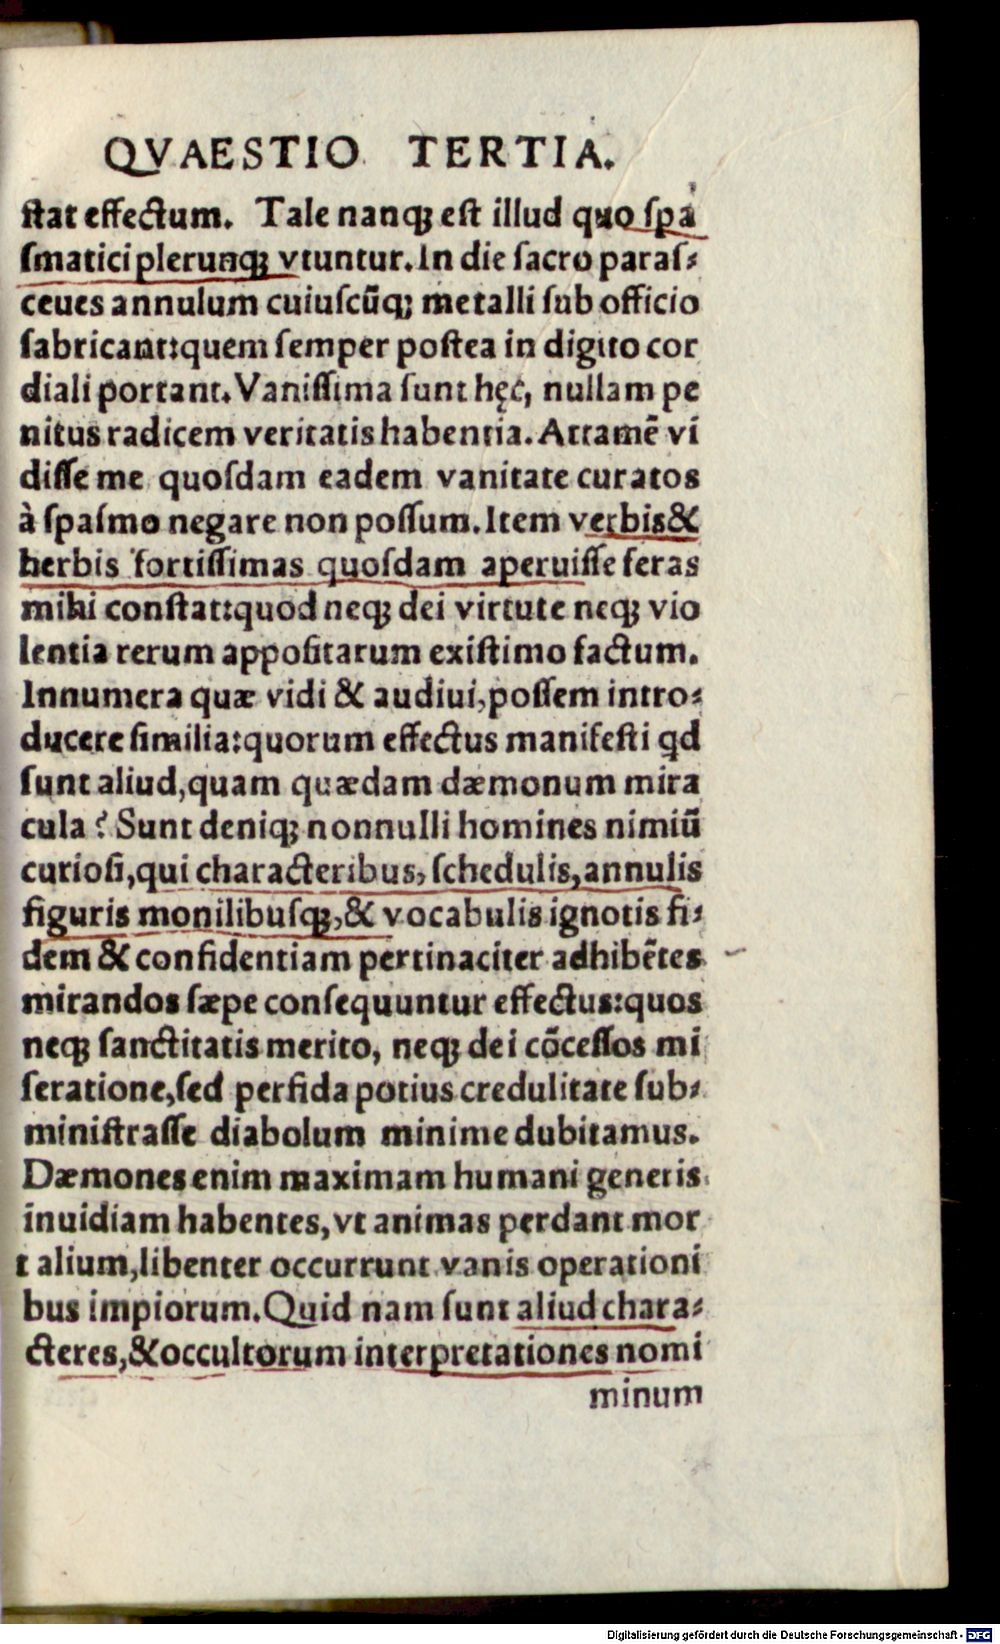 QVAESTIO TERTIA.
ſtat effectum. Tale nanqꝫ eſt illud quo ſpa
ſmatici plerunqꝫ vtuntur. In die ſacro paraſ⸗
ceues annulum cuiuſcūqꝫ metalli ſub officio
fabricant:quem ſemper poſtea in digito cor
diali portant. Vaniſſima ſunt hęc, nullam pe
nitus radicem veritatis habentia. Attamē vi
diſſe me quoſdam eadem vanitate curatos
à ſpaſmo negare non poſſum. Item verbis &
herbis fortiſſimas quoſdam aperuiſſe ſeras
mihi conſtat:quod neqꝫ dei virtute neqꝫ vio
lentia rerum appoſitarum exiſtimo factum.
Innumera quæ vidi & audiui, poſſem intro⸗
ducere ſimilia:quorum effectus manifeſti qd
ſunt aliud, quam quædam dæmonum mira
cula? Sunt deniqꝫ nonnulli homines nimiū
curioſi, qui characteribus, ſchedulis, annulis
figuris monilibuſqꝫ, & vocabulis ignotis fi⸗
dem & confidentiam pertinaciter adhibētes
mirandos ſæpe conſequuntur effectus:quos
neqꝫ ſanctitatis merito, neqꝫ dei cōceſſos mi
ſeratione, ſed perfida potius credulitate ſub⸗
miniſtraſſe diabolum minime dubitamus.
Dæmones enim maximam humani generis
inuidiam habentes, vt animas perdant mor
talium, libenter occurrunt vanis operationi
bus impiorum. Quid nam ſunt aliud chara⸗
cteres, & occultorum interpretationes nomi
minum
Digitalisierung gefördert durch die Deutsche Forschungsgemeinschaft - DFG